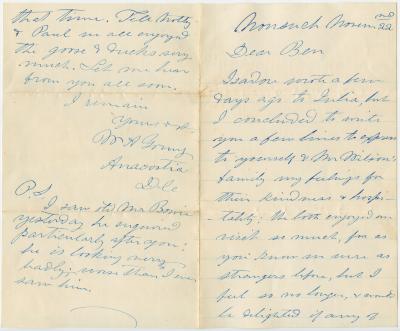 Nonsuch Novem 22nd
Dear Ben
Isadore wrote a few
days ago to Julia, but
I concluded to write
you a few lines to express
to yourself & Mr Wilson's
family my feelings for
their kindness & hospi-
-tality: We both enjoyed our
visit so much, for as
you know we were as
strangers before, but I
feel so no longer, & would
be delighted if any of
that time. Tell Molly
& Paul we all enjoyed
the goose & ducks very
much. Let me hear
from you all soon.
I remain
Yours &c.
M A Young
Anacostia
D.C.
P.S
I saw old Mr Bowie
yesterday he enquired
particularly after you:
he is looking very
badly: worse than I ever
saw him.